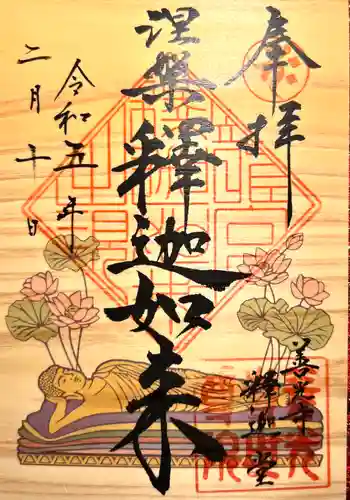 奉拝
涅槃釋迦如来
令和五年
二月十日
善光寺
釋迦堂